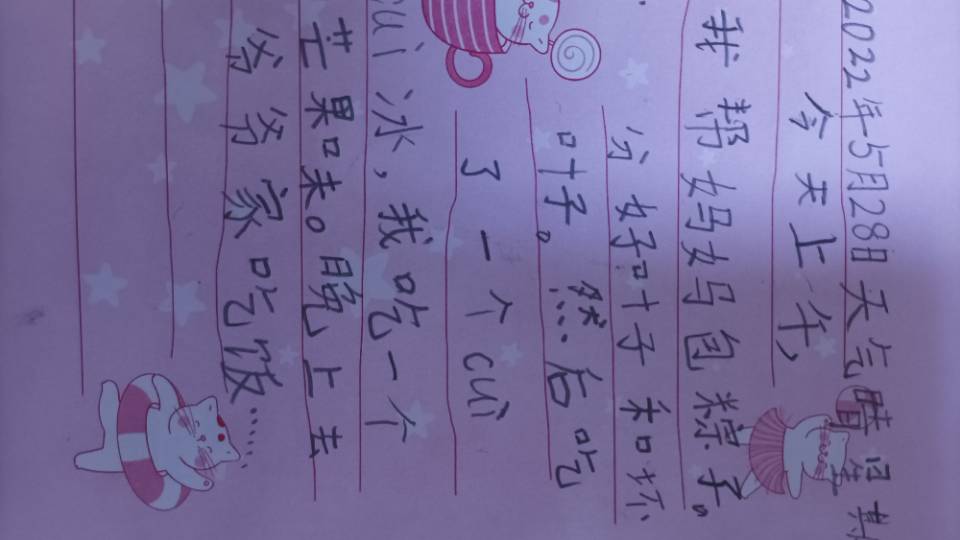 2022年5月28日 天气晴 星期
今天上午,
我帮妈妈包粽子。
分好叶子和坏
叶子。然后吃
了一个cuì
cuì冰,我吃一个
芒果味。晚上去
爷爷家吃饭……